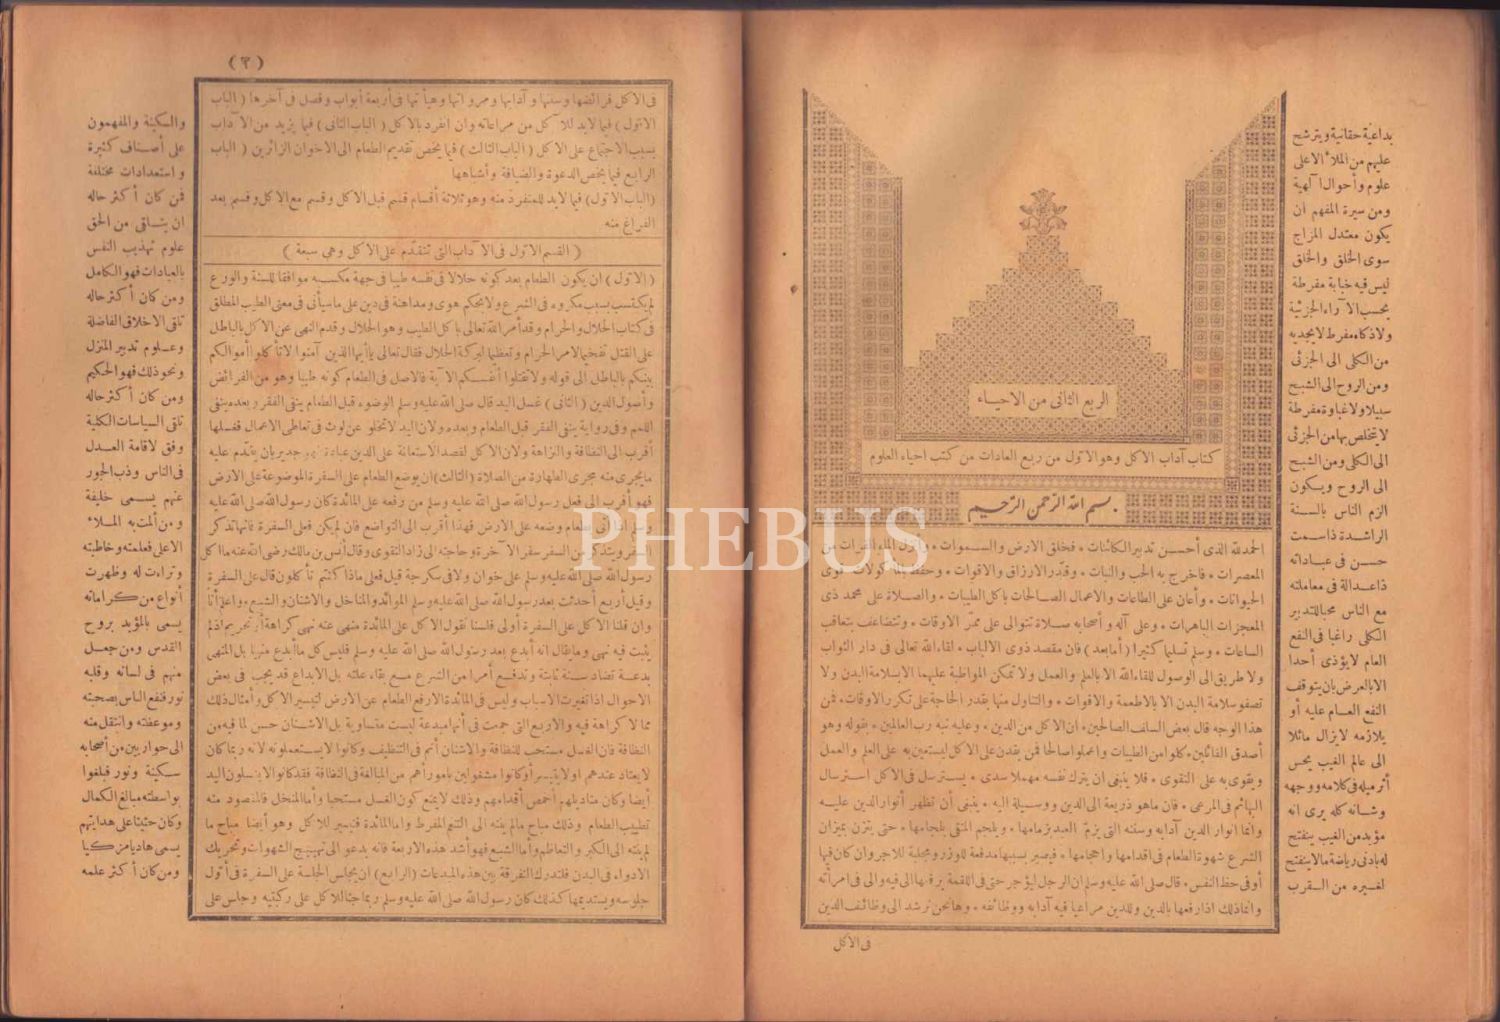 الربع الثانى من الاحياء
كتاب آداب الاكل وهو الاول من ربع العادات من كتب احياء العلوم
بسم الله الرحمن الرحيم
الحمد لله الذى أحسن تدبير الكائنات * فخلق الارض والسموات * وأنزل الماء الفرات من
المعصرات * فاخرج به الحب والنبات * وقدّر الارزاق والاقوات * وحفظ بالمأكولات قوى
الحيوانات * وأعان على الطاعات والاعمال الصالحات باكل الطيبات * والصلاة على محمد ذى
المعجزات الباهرات * وعلى آله وأصحابه صلاة تتوالى على ممرّ الاوقات * وتتضاعف بتعاقب
الساعات * وسلم تسليما كثيرا (أما بعد) فان مقصد ذوى الالباب * لقاء الله تعالى فى دار الثواب
ولا طريق الى الوصول للقاء الله الا بالعلم والعمل ولا تمكن المواظبة عليهما الا بسلامة البدن ولا
تصفو سلامة البدن الا بالاطعمة والاقوات * والتناول منها بقدر الحاجة على تكرر الاوقات * فمن
هذا الوجه قال بعض السلف الصالحين * ان الاكل من الدين * وعليه نبه رب العالمين * بقوله وهو
أصدق القائلين * كلوا من الطيبات واعملوا صالحا فمن يقدم على الاكل ليستعين به على العلم والعمل
ويقوى به على التقوى * فلا ينبغى ان يترك نفسه مهملا سدى * يسترسل فى الاكل استرسال
البهائم فى المرعى * فان ما هو ذريعة الى الدين ووسيلة اليه * ينبغى أن تظهر أنوار الدين عليه
وانما انوار الدين آدابه وسننه التى يزمّ العبد بزمامها * ويلجم المتقى بلجامها * حتى يتزن بميزان
الشرع شهوة الطعام فى اقدامها واحجامها * فيصير بسببها مدفعة للوزر ومجلبة للاجر وان كان فيها
أوفى حظ النفس * قال صلى الله عليه وسلم ان الرجل ليؤجر حتى فى اللقمة يرفعها الى فيه والى فى امرأته
وانما ذلك اذا رفعها بالدين وللدين مراعيا فيه آدابه ووظائفه * وها نحن نرشد الى وظائف الدين
فى الاكل
بداعية حقانية ويترشح
عليهم من الملأ الاعلى
علوم وأحوال الهية
ومن سيرة المفهم أن
يكون معتدل المزاج
سوى الخلق والخلق
ليس فيه خبابة مفرطة
بحسب الآراء الجزئية
ولا ذكاء مفرط لا يجد به
من الكلى الى الجزئى
ومن الروح الى الشبح
سبيلا ولا غباوة مفرطة
لا يتخلص بها من الجزئى
الى الكلى ومن الشبح
الى الروح ويكون
الزم الناس بالسنة
الراشدة ذا سمت
حسن فى عباداته
ذا عدالة فى معاملته
مع الناس محبا للتدبير
الكلى راغبا فى النفع
العام لا يؤذى أحدا
الا بالعرض بان يتوقف
النفع العام عليه أو
يلازمه لا يزال مائلا
الى عالم الغيب يحس
أثر ميله فى كلامه ووجهه
وشانه كله يرى انه
مؤيد من الغيب ينفتح
له بادنى رياضة ما لا ينفتح
لغيره من القرب
(٣)
فى الاكل فرائضها وسننها وآدابها ومروآتها وهيآتها فى أربعة أبواب وفصل فى آخرها (الباب
الاول) فيما لابد للآكل من مراعاته وان انفرد بالاكل (الباب الثانى) فيما يزيد من الآداب
بسبب الاجتماع على الاكل (الباب الثالث) فيما يخص تقديم الطعام الى الاخوان الزائرين (الباب
الرابع فيما يخص الدعوة والضيافة وأشباهها
(الباب الاول) فيما لابد للمنفرد منه وهو ثلاثة أقسام قسم قبل الاكل وقسم مع الاكل وقسم بعد
الفراغ منه
(القسم الاول فى الآداب التى تتقدّم على الاكل وهى سبعة)
(الاول) ان يكون الطعام بعد كونه حلالا فى نفسه طيبا فى جهة مكسبه موافقا للسنة والورع
لم يكتسب بسبب مكروه فى الشرع ولا بحكم هوى ومداهنة فى دين على ما سيأتى فى معنى الطيب المطلق
فى كتاب الحلال والحرام وقد أمر الله تعالى باكل الطيب وهو الحلال وقدم النهى عن الاكل بالباطل
على القتل تفخيما لامر الحرام وتعظيما لبركة الحلال فقال تعالى يا أيها الذين آمنوا لا تأكلوا أموالكم
بينكم بالباطل الى قوله ولا تقتلوا أنفسكم الآية فالاصل فى الطعام كونه طيبا وهو من الفرائض
وأصول الدين (الثانى) غسل اليد قال صلى الله عليه وسلم الوضوء قبل الطعام ينفى الفقر وبعده ينفى
اللمم وفى رواية ينفى الفقر قبل الطعام وبعده ولان اليد لا تخلو عن لوث فى تعاطى الاعمال فغسلها
أقرب الى النظافة والنزاهة ولان الاكل لقصد الاستعانة على الدين عبادة فهو جدير بان يقدّم عليه
ما يجرى منه مجرى الطهارة من الصلاة (الثالث) ان يوضع الطعام على السفرة الموضوعة على الارض
فهو أقرب الى فعل رسول الله صلى الله عليه وسلم من رفعه على المائدة كان رسول الله صلى الله عليه
وسلم اذا أتى بطعام وضعه على الارض فهذا أقرب الى التواضع فان لم يكن فعلى السفرة فانها تذكر
السفر ويتذكر من السفر سفر الآخرة وحاجته الى زاد التقوى وقال أنس بن مالك رضى الله عنه ما أكل
رسول الله صلى الله عليه وسلم على خوان ولا فى سكرجة قيل فعلى ماذا كنتم تأكلون قال على السفرة
وقيل أربع أحدثت بعد رسول الله صلى الله عليه وسلم الموائد والمناخل والاشنان والشبع واعلم أنا
وان قلنا الاكل على السفرة أولى فلسنا نقول الاكل على المائدة منهى عنه نهى كراهة أو تحريم اذ لم
يثبت فيه نهى وما يقال انه أبدع بعد رسول الله صلى الله عليه وسلم فليس كل ما أبدع منهيا بل المنهى
بدعة تضاد سنة ثابتة وتدفع أمرا من الشرع مع بقاء علته بل الابداع قد يجب فى بعض
الاحوال اذا تغيرت الاسباب وليس فى المائدة الا رفع الطعام عن الارض لتيسير الاكل وأمثال ذلك
مما لا كراهة فيه والاربع التى جمعت فى أنها مبدعة ليست متساوية بل الاشنان حسن لما فيه من
النظافة فان الغسل مستحب للنظافة والاشنان أتم فى التنظيف وكانوا لا يستعملونه لانه ربما كان
لا يعتاد عندهم او لا يتيسر أو كانوا مشغولين بامور أهم من المبالغة فى النظافة فقد كانوا لا يغسلون اليد
أيضا وكان مناديلهم أخمص أقدامهم وذلك لا يمنع كون الغسل مستحبا وأما المنخل فالمقصود منه
تطييب الطعام وذلك مباح ما لم ينته الى التنعم المفرط واما المائدة فتيسير للاكل وهو أيضا مباح ما
لم ينته الى الكبر والتعاظم وأما الشبع فهو أشد هذه الاربعة فانه يدعو الى تهييج الشهوات وتحريك
الادواء فى البدن فلتدرك التفرقة بين هذه المبدعات (الرابع) ان يحسن الجلسة على السفرة فى أول
جلوسه ويستديمها كذلك كان رسول الله صلى الله عليه وسلم ربما جثا للاكل على ركبتيه وجلس على
والسكينة والمفهمون
على أصناف كثيرة
واستعدادات مختلفة
فمن كان أكثر حاله
ان يتلقى من الحق
علوم تهذيب النفس
بالعبادات فهو الكامل
ومن كان أكثر حاله
تلقى الاخلاق الفاضلة
وعلوم تدبير المنزل
ونحو ذلك فهو الحكيم
ومن كان أكثر حاله
تلقى السياسات الكلية
وفق لاقامة العدل
فى الناس وذب الجور
عنهم يسمى خليفة
ومن ألمت به الملاء
الاعلى فعلمته وخاطبته
وتراءت له وظهرت
أنواع من كراماته
يسمى بالمؤيد بروح
القدس ومن جعل
منهم فى لسانه وقلبه
نور فنفع الناس بصحبته
وموعظته وانتقل منه
الى حواريين من أصحابه
سكينة ونور فبلغوا
بواسطته مبالغ الكمال
وكان حثيثا على هدايتهم
يسمى هاديا مزكيا
ومن كان أكثر علمه
PHEBUS